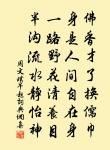 佛香才了换儒巾
身是人间自在身
一路野花清养目
半沟流水静怡神
周文璞平赵词典网集